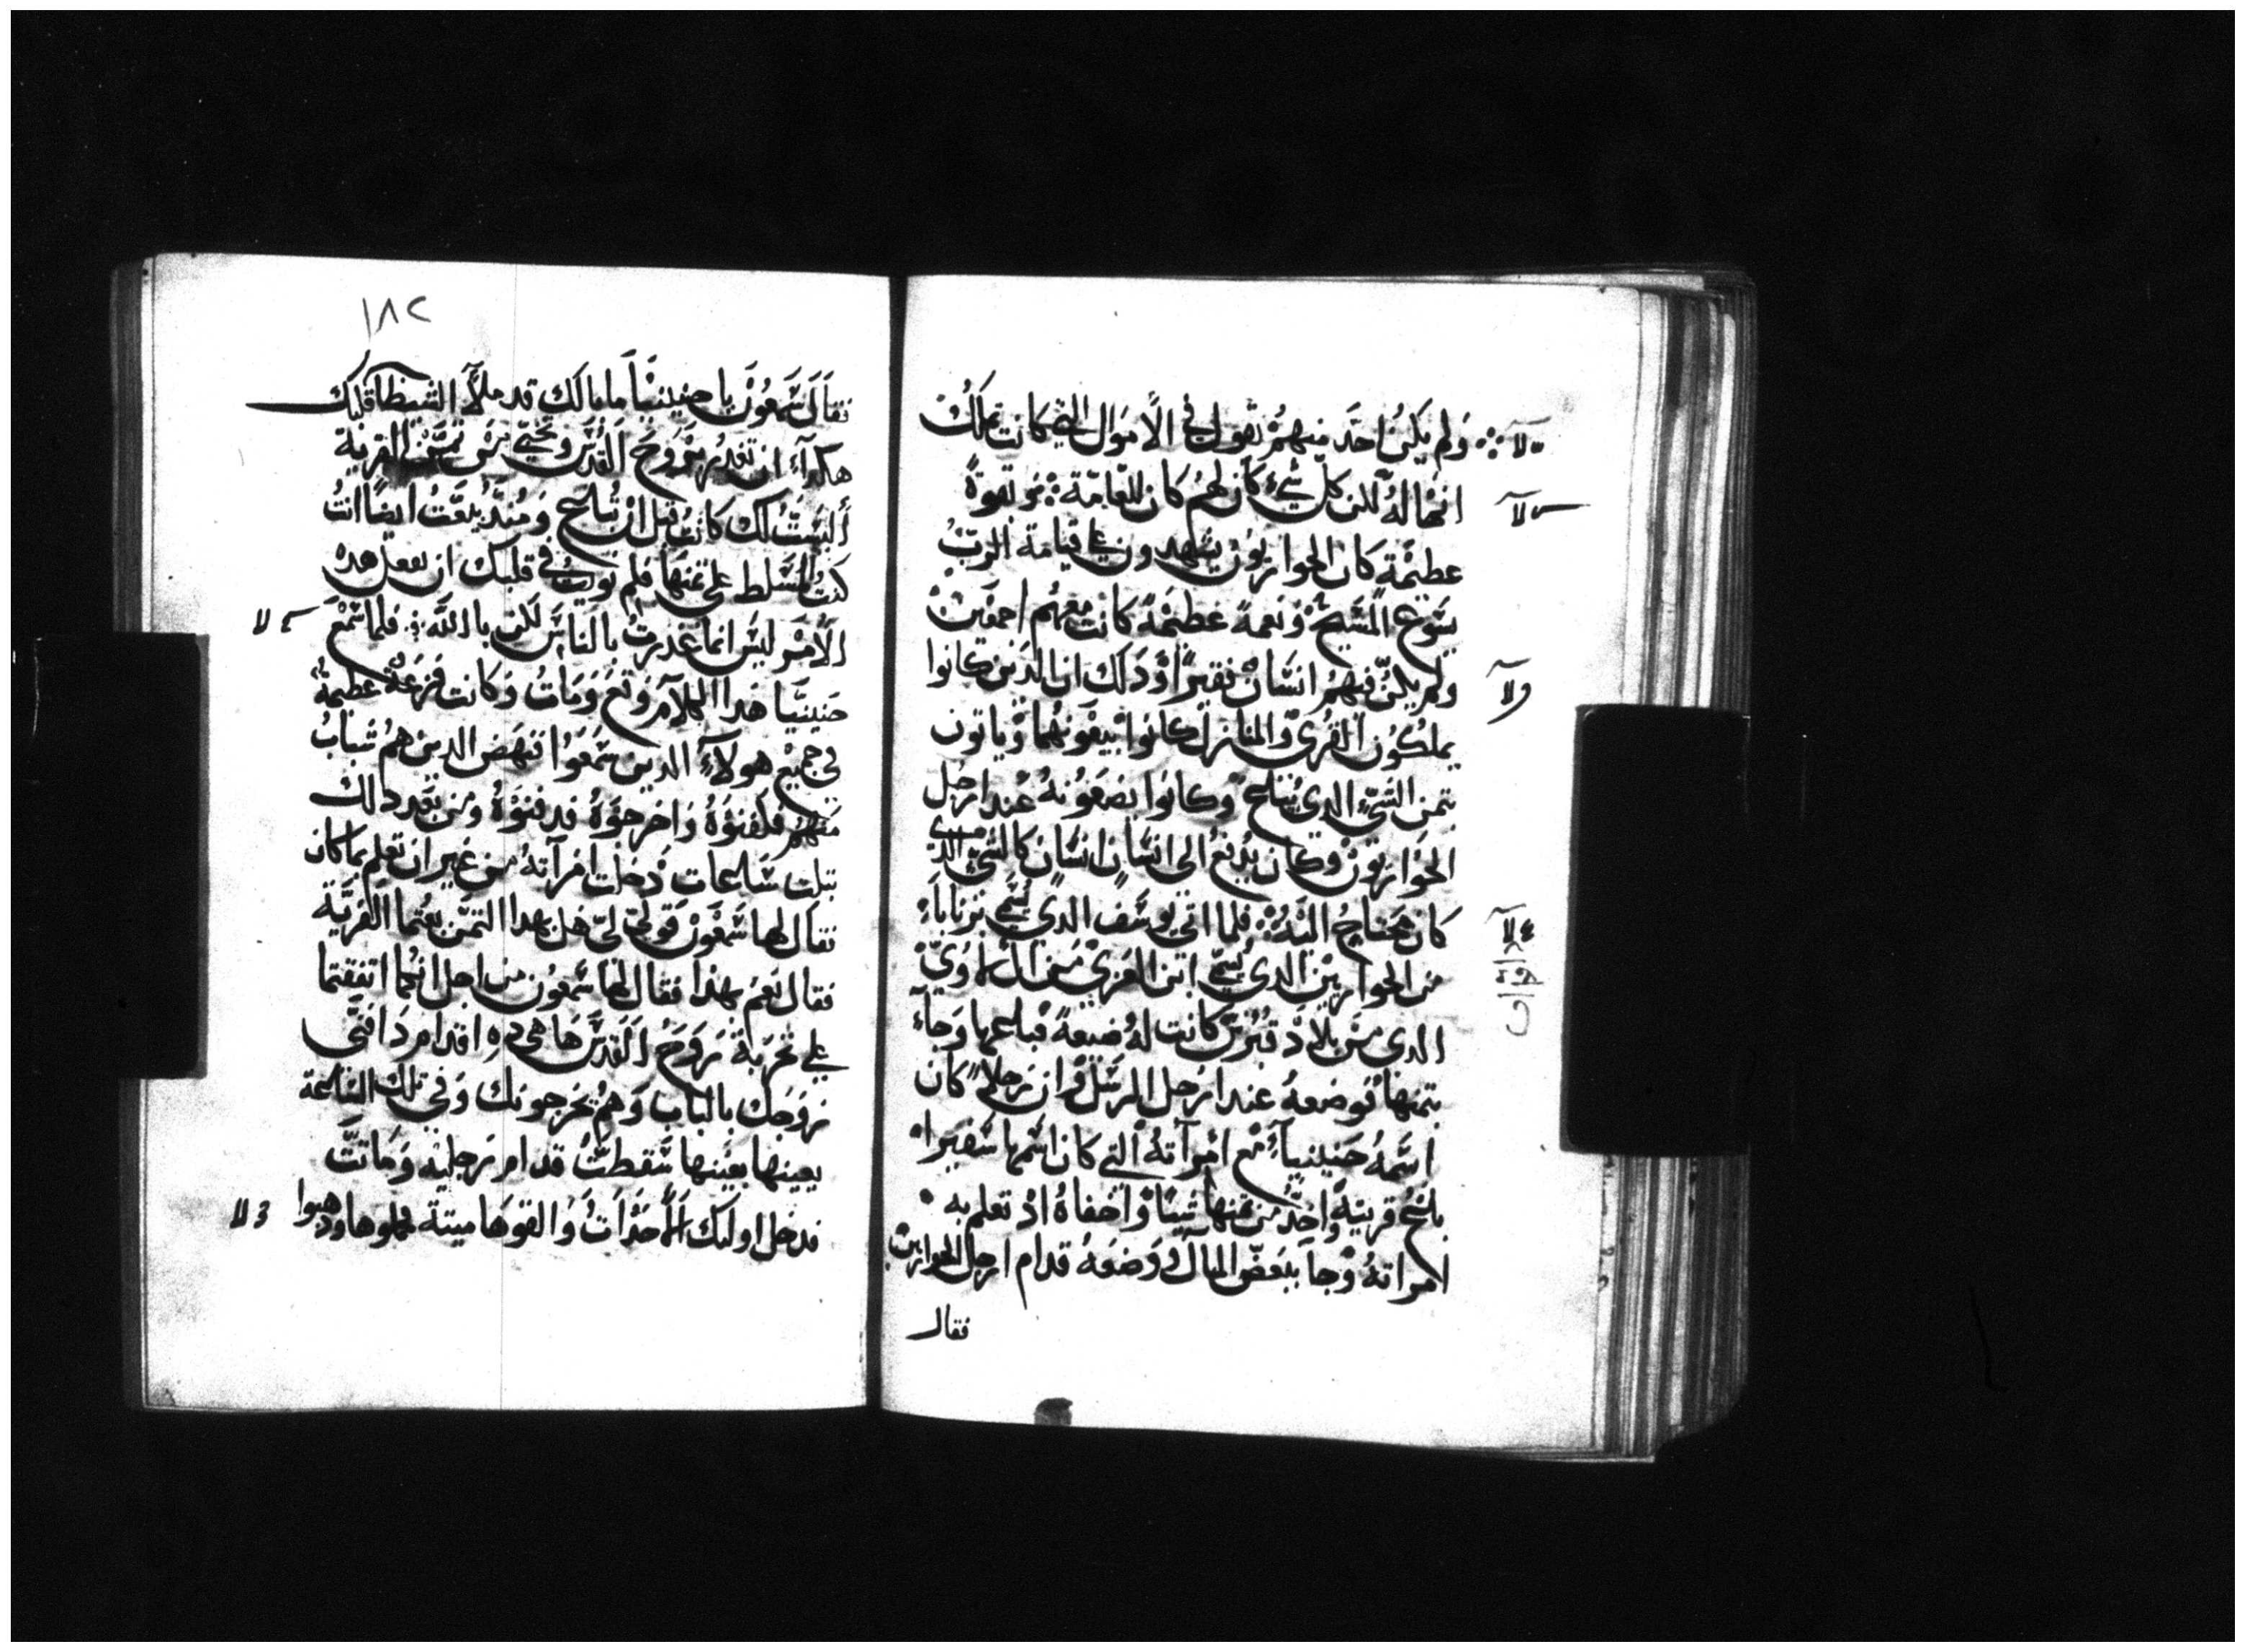 ولم يكن احد منهم يقول في الاموال التي كانت تملك
انها له لكن كل شيء كان لهم كان للعامة وبقوة
عظيمة كان الحواريون يشهدون على قيامة الرب
يسوع المسيح ونعمة عظيمة كانت معهم اجمعين
ولم يكن فيهم انسان فقيرا وذلك ان الذين كانوا
يملكون القرى والمنازل كانوا يبيعونها وياتون
بثمن الشيء الذي يبتاع وكانوا يضعونه عند ارجل
الحواريون وكان يدفع الى انسان انسان كالشيء الذي
كان محتاج اليه فلما اتى يوسف الذي سمي برنابا
من الحواريين الذي سمي ابن العزي من اللاوي
الذي من بلاد قبرس كانت له ضيعة فباعها وجاء
بثمنها فوضعه عند ارجل الرسل وان رجلا كان
اسمه حنينيا مع امراته التي كان اسمها سفيرا
باع قريته واخذ من ثمنها شيئا واخفاه اذ تعلم به
امراته وجا ببعض المال ووضعه قدام ارجل الحواريين
فقال
١٨٢
فقال شمعون يا حنينيا ما بالك قد ملا الشيطان قلبك
هكذا ان تغدر بروح القدس وتخبي من ثمن القرية
أليست لك كانت قبل ان تباع ومنذ بيعت ايضا انت
كنت المسلط على ثمنها فلم نويت في قلبك ان تفعل هذه
الامر ليس انما غدرت بالناس لكن بالله فلما سمع
حنينيا هذا الكلام وقع ومات وكانت فزعة عظيمة
في جميع هولاء الذين سمعوا فنهض الذين هم شباب
منهم فلفنوه واخرجوه فدفنوه ومن بعد ذلك
بثلث ساعات دخلت امراته من غير ان تعلم بما كان
فقال لها شمعون قولي لي هل بهذا الثمن بعتما القرية
فقال نعم بهذا فقال لها شمعون من اجل انكما اتفقتما
على تجربة روح القدس ها هي ده اقدام دافني
زوجك بالباب وهم يخرجونك وفي تلك الساعة
بعينها بعينها سقطت قدام رجليه وماتت
فدخل اوليك الاحداث والقوها ميتة فحملوها ودهبوا